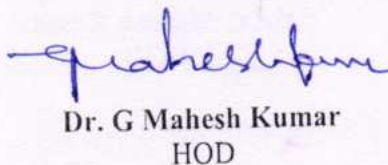 Dr. G Mahesh Kumar
HOD